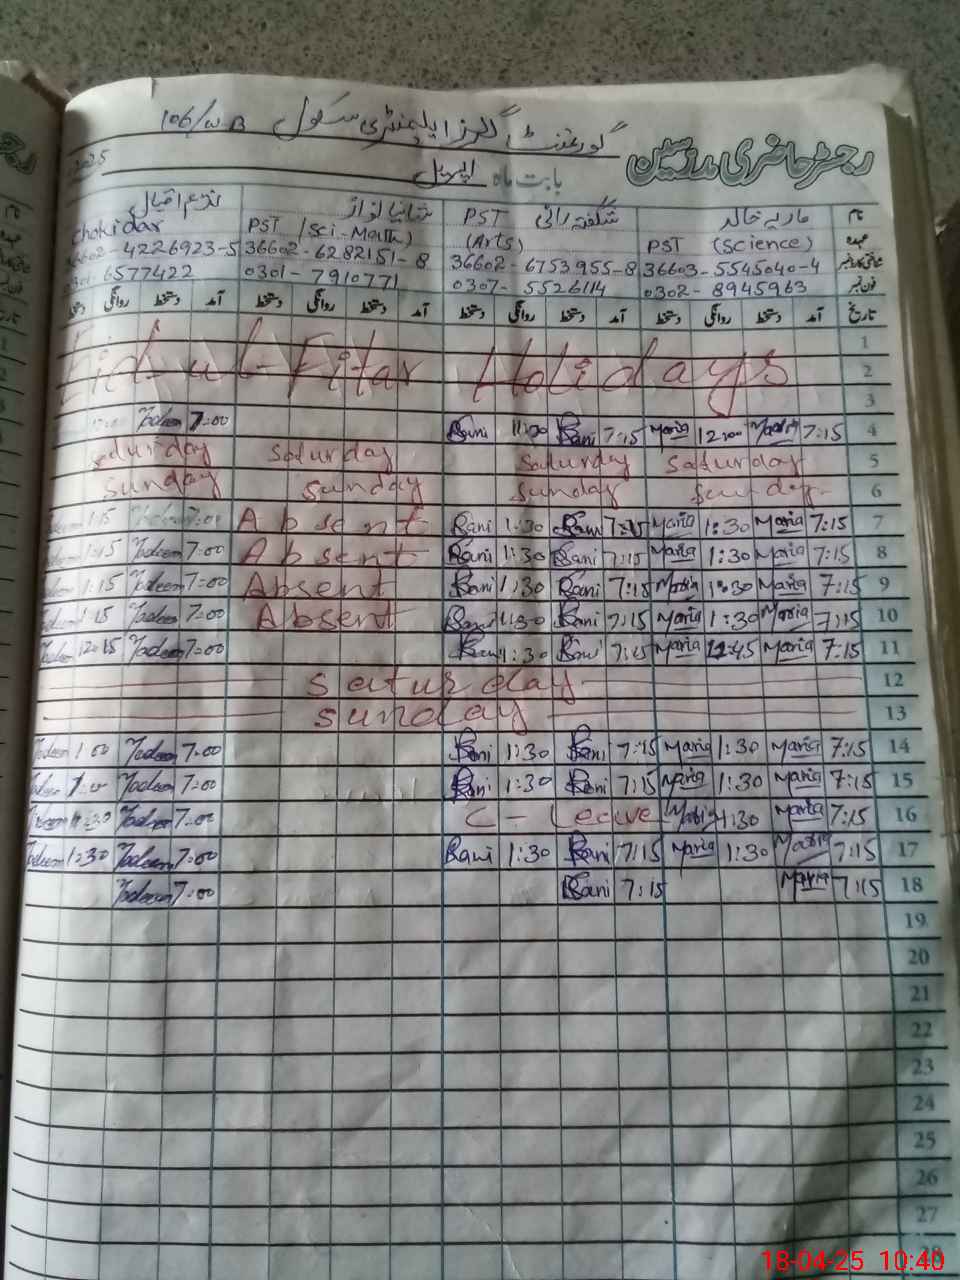 گورنمنٹ گرلز ایلیمنٹری سکول 106/W.B
رجسٹر حاضری مدرسین
بابت ماہ اپریل 2025
نام ماریہ خالد شگفتہ رانی ثانیا نواز ندیم اقبال
عہدہ PST (Science) PST (Arts) PST (Sci-Math) Chokidar
شناختی کارڈ نمبر 36603-5545040-4 36602-6753955-8 36602-6282151-8 36602-4226923-5
فون نمبر 0302-8945963 0307-5526114 0301-7910771 6577422
تاریخ آمد دستخط روانگی دستخط آمد دستخط روانگی دستخط آمد دستخط روانگی دستخط دستخط روانگی
1
2 Eid-ul-Fitar Holidays
3
4 7:15 Maria 12:00 Maria 7:15 Rani 11:30 Rani 7:00 Nadeem
5 Saturday Saturday Saturday Saturday
6 Sunday Sunday Sunday Sunday
7 7:15 Maria 1:30 Maria 7:15 Rani 1:30 Rani Absent 7:00 Nadeem 1:15
8 7:15 Maria 1:30 Maria 7:15 Rani 1:30 Rani Absent 7:00 Nadeem 1:15
9 7:15 Maria 1:30 Maria 7:15 Rani 1:30 Rani Absent 7:00 Nadeem 1:15
10 7:15 Maria 1:30 Maria 7:15 Rani 1:30 Rani Absent 7:00 Nadeem 1:15
11 7:15 Maria 12:45 Maria 7:15 Rani 1:30 Rani 7:00 Nadeem 12:15
12 Saturday
13 Sunday
14 7:15 Maria 1:30 Maria 7:15 Rani 1:30 Rani 7:00 Nadeem 1:00 Nadeem
15 7:15 Maria 1:30 Maria 7:15 Rani 1:30 Rani 7:00 Nadeem Nadeem
16 7:15 Maria 1:30 Maria C-Leave 7:00 Nadeem Nadeem
17 7:15 Maria 1:30 Maria 7:15 Rani 1:30 Rani 7:00 Nadeem 1:30 Nadeem
18 7:15 Maria 7:15 Rani 7:00 Nadeem
19
20
21
22
23
24
25
26
27
18-04-25 10:40